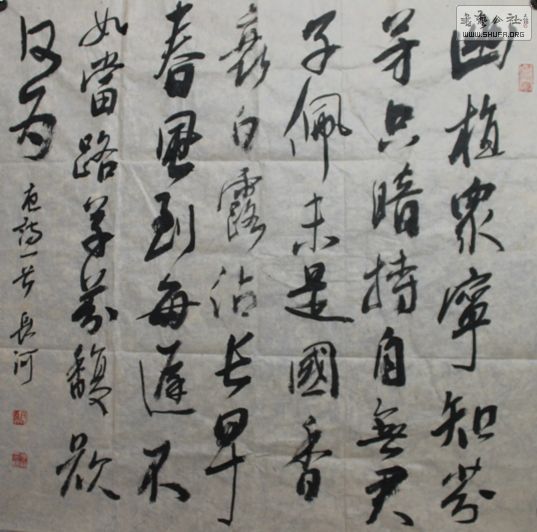 書藝公社
WWW.SHUFA.ORG
幽植眾寧知芬
芳只暗持自無君
子佩未是國香
衰白露沾长早
春風到每遲不
如當路草芬馥欲
何为
诗一首 長河